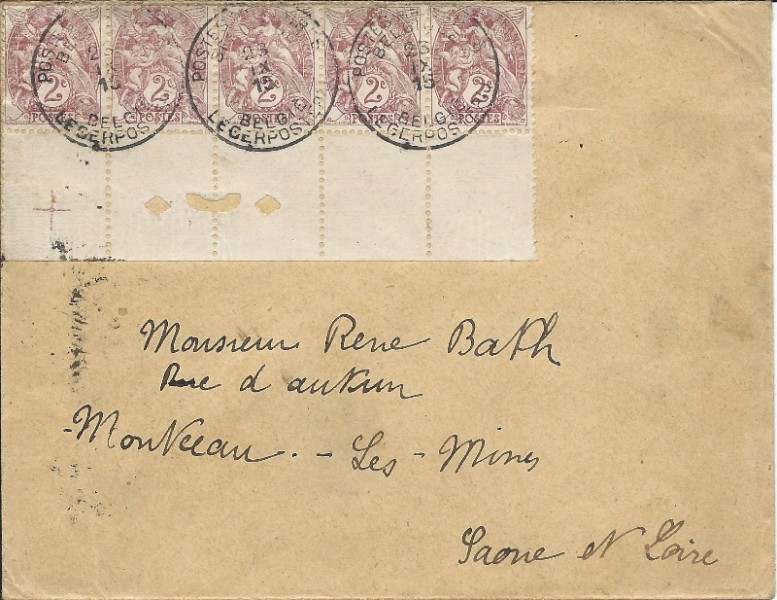 2c 2c 2c 2c 2c
POSTES POSTES POSTES POSTES POSTES
BELG
LEGERPOS
23
IX
15
BELG
LEGERPOS
BELG
LEGERPOS
Monsieur Rene Bath
Rue d'autun
-Montceau.-Les-Mines
Saone et Loire